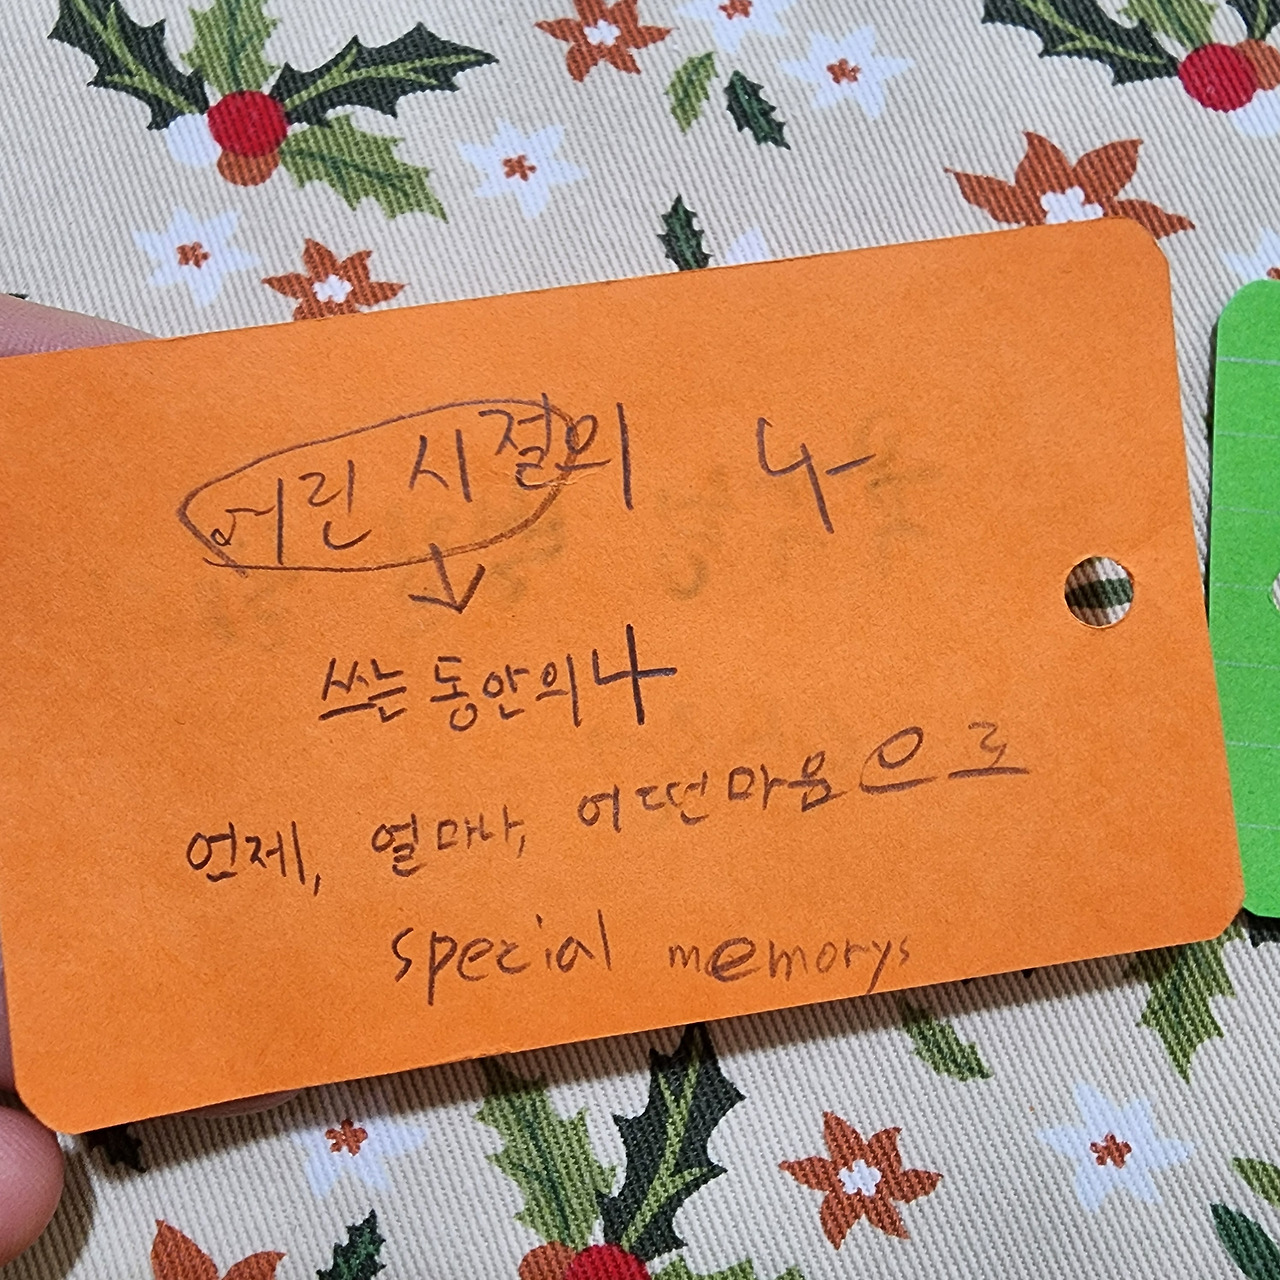 어린 시절의 나
↓
쓰는 동안의 나
언제, 얼마나, 어떤 마음으로
special memorys